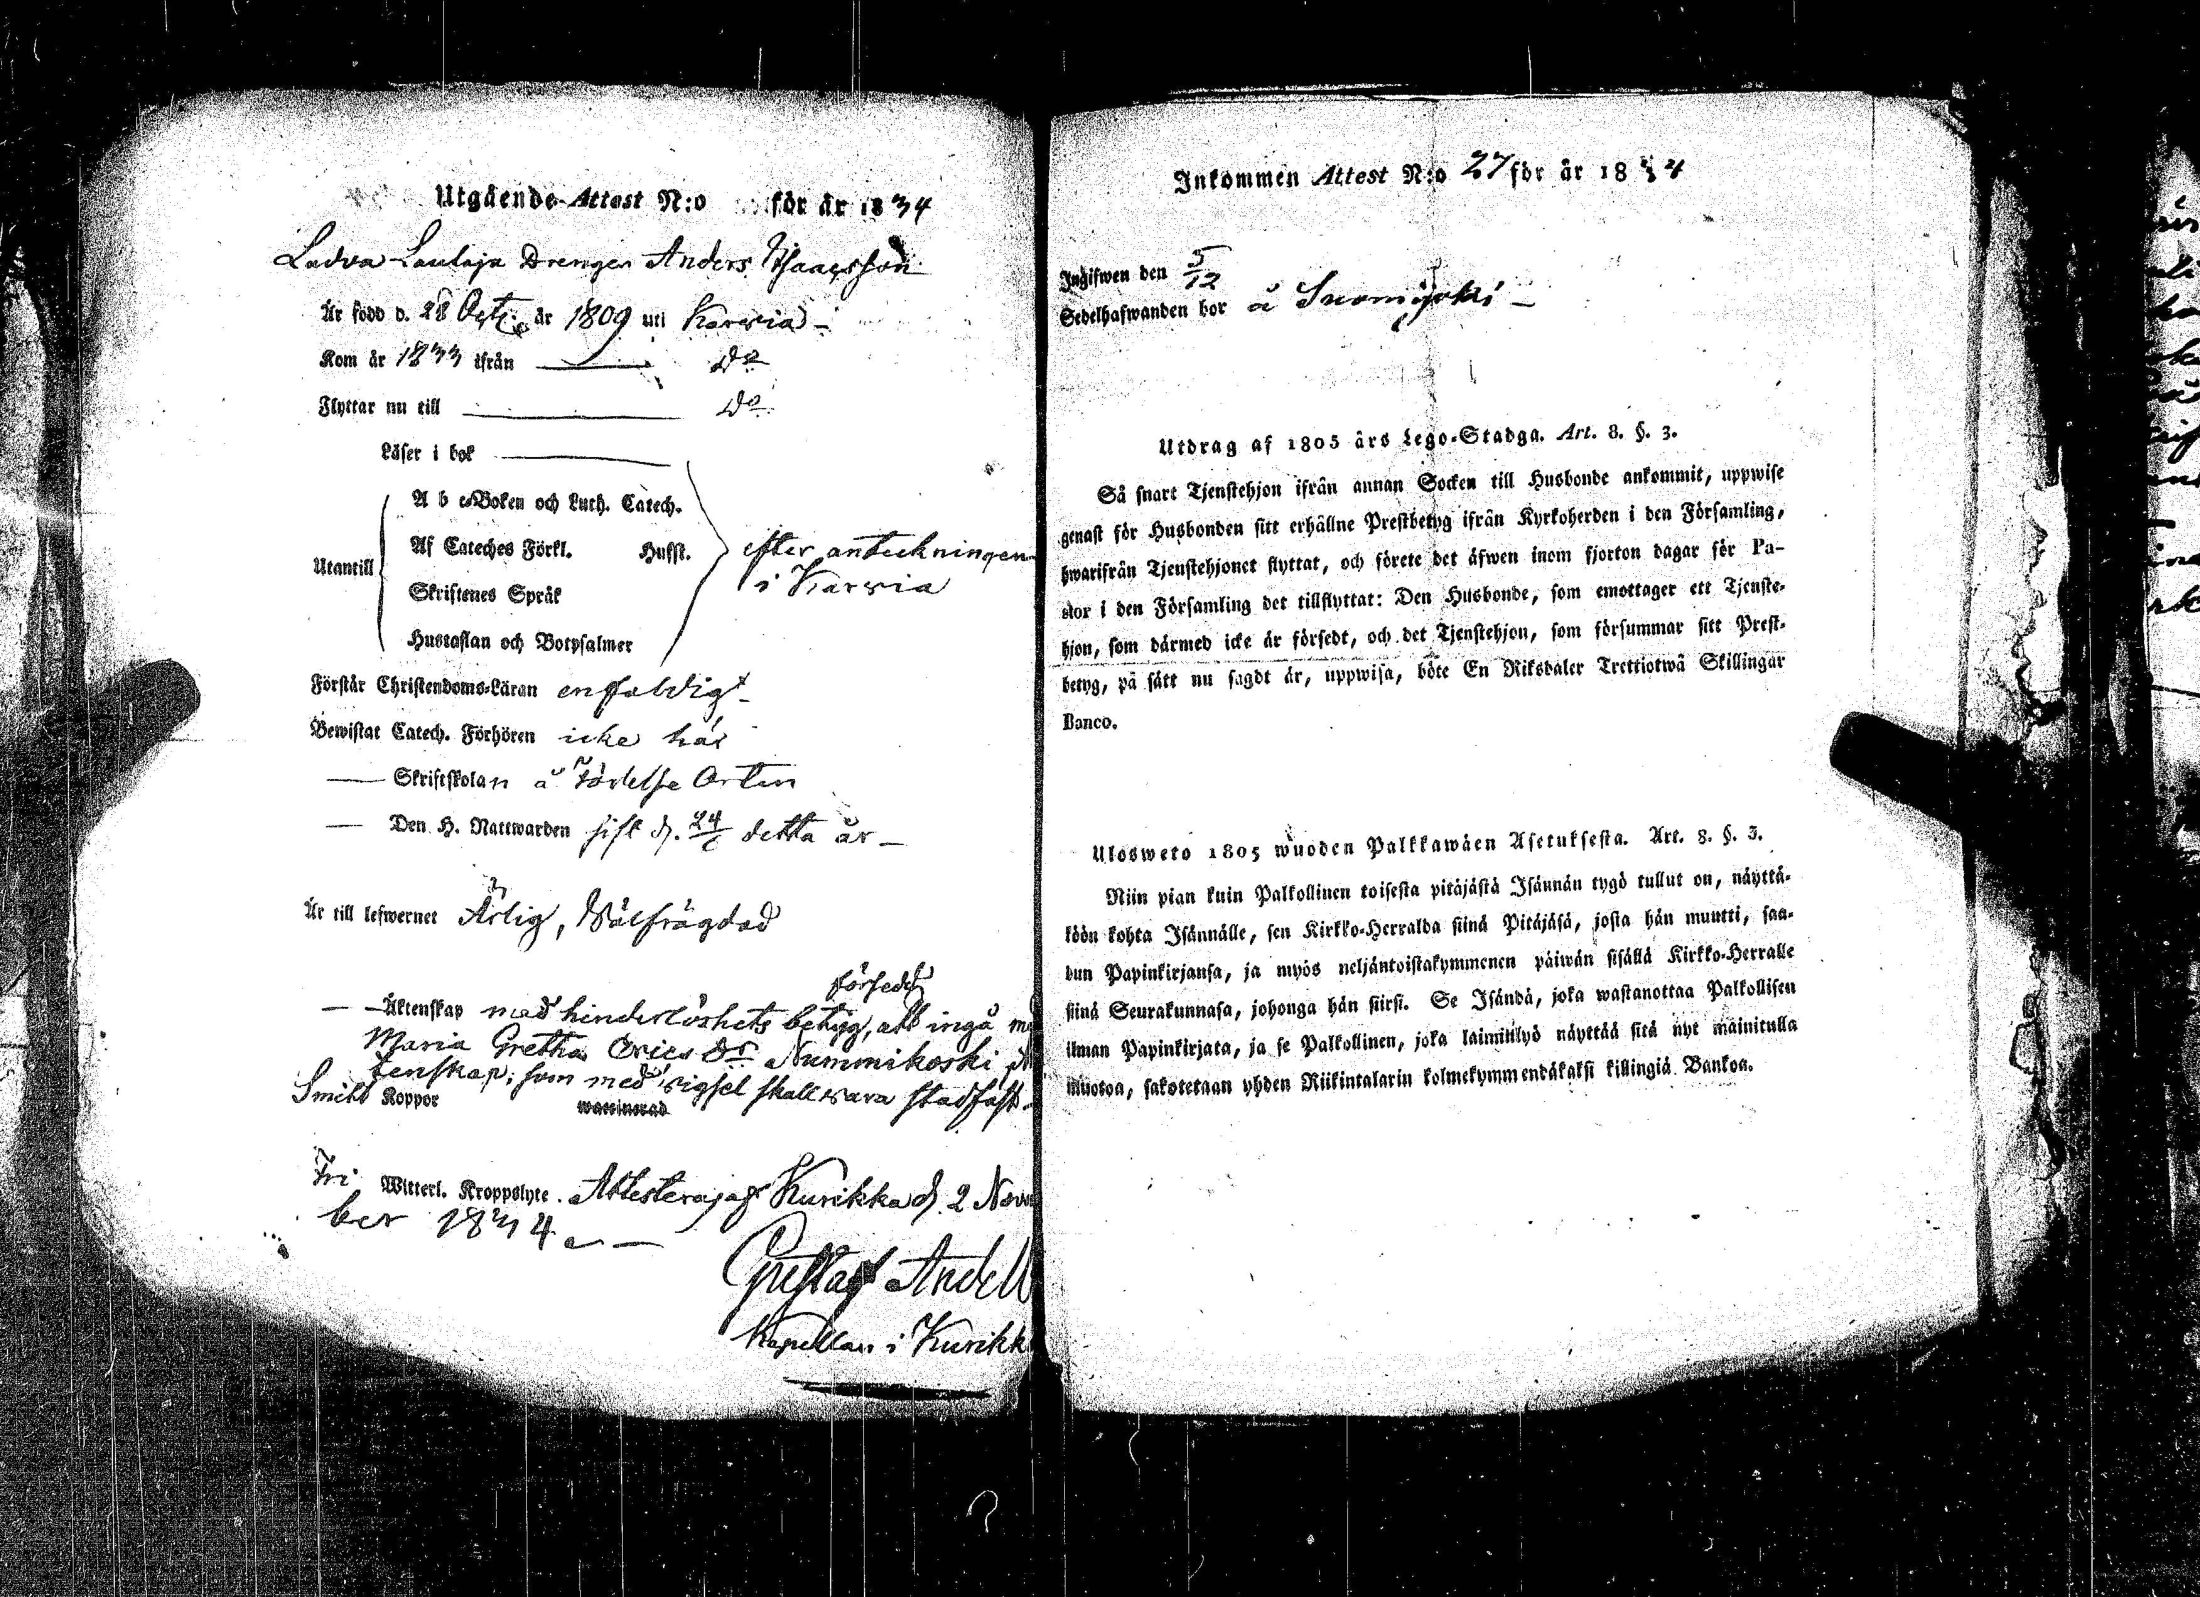 Utgående-Attest N:o för år 1834
Ladva Laulaja Drengen Anders Isaacsson
Är född d. 28 Octr. år 1809 uti Karvia -
Kom år 1833 ifrån Do
Flyttar nu till Do
Läser i bok
A b c-Boken och Luth. Catech.
Utantill Af Cateches Förkl. Husst. efter anteckningen
i Karvia
Skriftenes Språk
Hustaflan och Botpsalmer
Förstår Christendoms-Läran enfaldigt -
Bewistat Catech. Förhören icke här
— Skriftskolan å Födelse Orten
— Den H. Nattwarden sist d. 24/ detta år —
Är till lefwernet Ärlig, Välfrägdad
försedd
— Äktenskap med hinderlöshets betyg, att ingå
Maria Gretha Erics Dr Nummikoski
tenskap; som med vigsel skall vara stadfäst
Smitt Koppor waccinerad
Fri Witterl. Kroppslyte. Attesterar Kurikka d. 2 Nov
ber 1834. —
Gustaf Andell
Kapellan i Kurikk
Inkommen Attest N:o 27 för år 1834
Ingifwen den 5/12
Sedelhafwanden bor å Suomijoki —
Utdrag af 1805 års Lego-Stadga. Art. 8. §. 3.
Så snart Tjenstehjon ifrån annan Socken till Husbonde ankommit, uppwise
genast för Husbonden sitt erhållne Prestbetyg ifrån Kyrkoherden i den Församling,
hwarifrån Tjenstehjonet flyttat, och förete det äfwen inom fjorton dagar för Pa-
stor i den Församling det tillflyttat: Den Husbonde, som emottager ett Tjenste-
hjon, som därmed icke är försedt, och det Tjenstehjon, som försummar sitt Prest-
betyg, på sätt nu sagdt är, uppwisa, böte En Riksdaler Trettiotwå Skillingar
Banco.
Ulosweto 1805 wuoden Palkkawäen Asetuksesta. Art. 8. §. 3.
Niin pian kuin Palkollinen toisesta pitäjästä Isännän tygö tullut on, näyttä-
köön kohta Isännälle, sen Kirkko-Herralda siinä Pitäjäsä, josta hän muutti, saa-
dun Papinkirjansa, ja myös neljäntoistakymmenen päiwän sisällä Kirkko-Herralle
siinä Seurakunnasa, johonga hän siirsi. Se Isändä, joka wastanottaa Palkollisen
ilman Papinkirjata, ja se Palkollinen, joka laiminlyö näyttää sitä nyt mainitulla
muotoa, sakotetaan yhden Riikintalarin kolmekymmendäkaksi killingiä Bankoa.